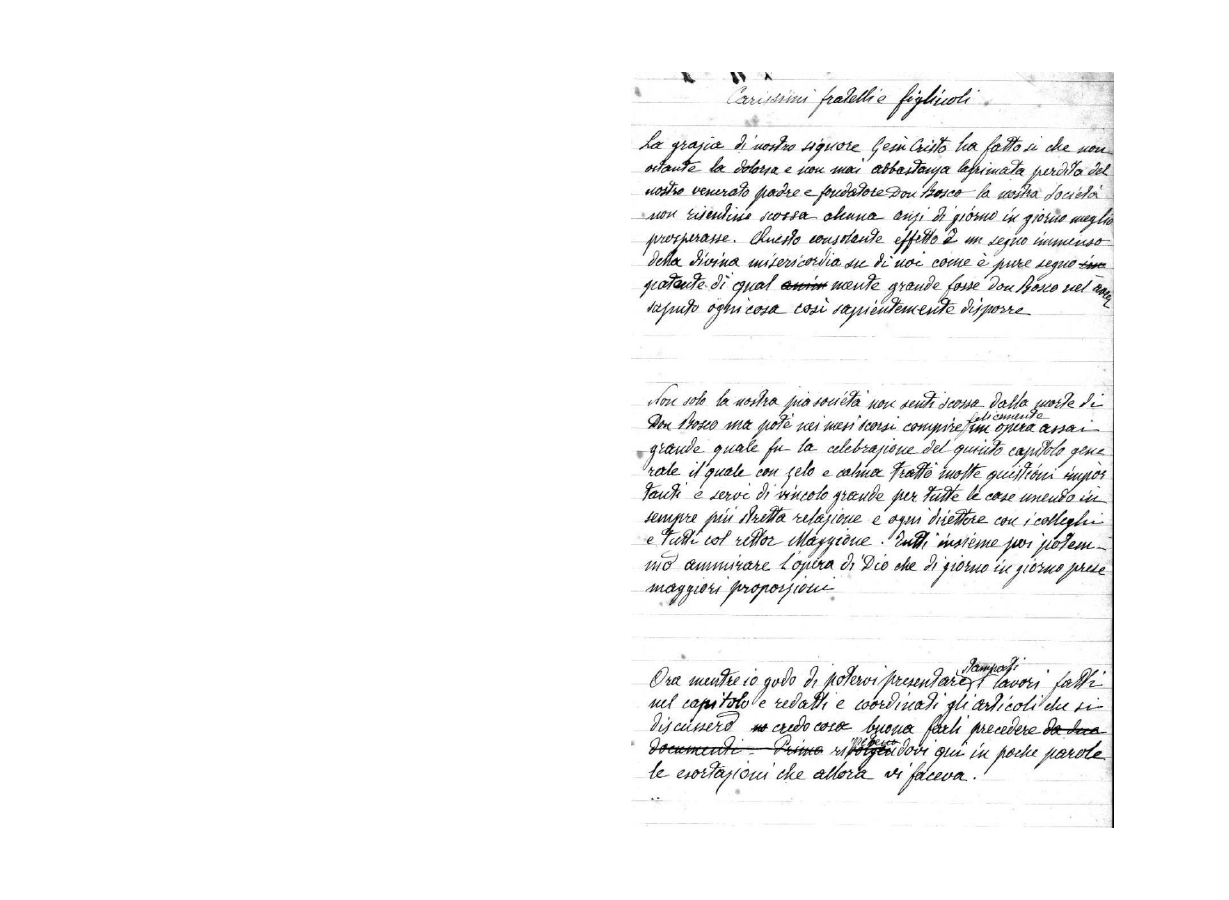 Carissimi fratelli e figliuoli
La grazia di nostro signore Gesù Cristo ha fatto si che non
ostante la dolorosa e non mai abbastanza lagrimata perdita del
nostro venerato padre e fondatore Don Bosco la nostra Società
non risentisse scossa alcuna anzi di giorno in giorno meglio
prosperasse. Questo consolante effetto è un segno immenso
della divina misericordia su di noi come è pure segno
potente di qual mente grande fosse Don Bosco nel aver
saputo ogni cosa così sapientemente disporre
Non solo la nostra pia società non sentì scossa dalla morte di
Don Bosco ma potè nei mesi scorsi compire felicemente un opera assai
grande quale fu la celebrazione del quinto capitolo gene
rale il quale con zelo e calma trattò molte quistioni impor
tanti e servì di vincolo grande per tutte le case unendo in
sempre più stretta relazione e ogni direttore con i colleghi
e tutti col rettor Maggiore. Tutti insieme poi potem-
mo ammirare l'opera di Dio che di giorno in giorno prese
maggiori proporzioni
Ora mentre io godo di potervi presentare stampati i lavori fatti
nel capitolo e redatti e coordinati gli articoli che si
discussero credo cosa buona farli precedere da due
documenti. Prima qui in poche parole
le esortazioni che allora vi faceva.